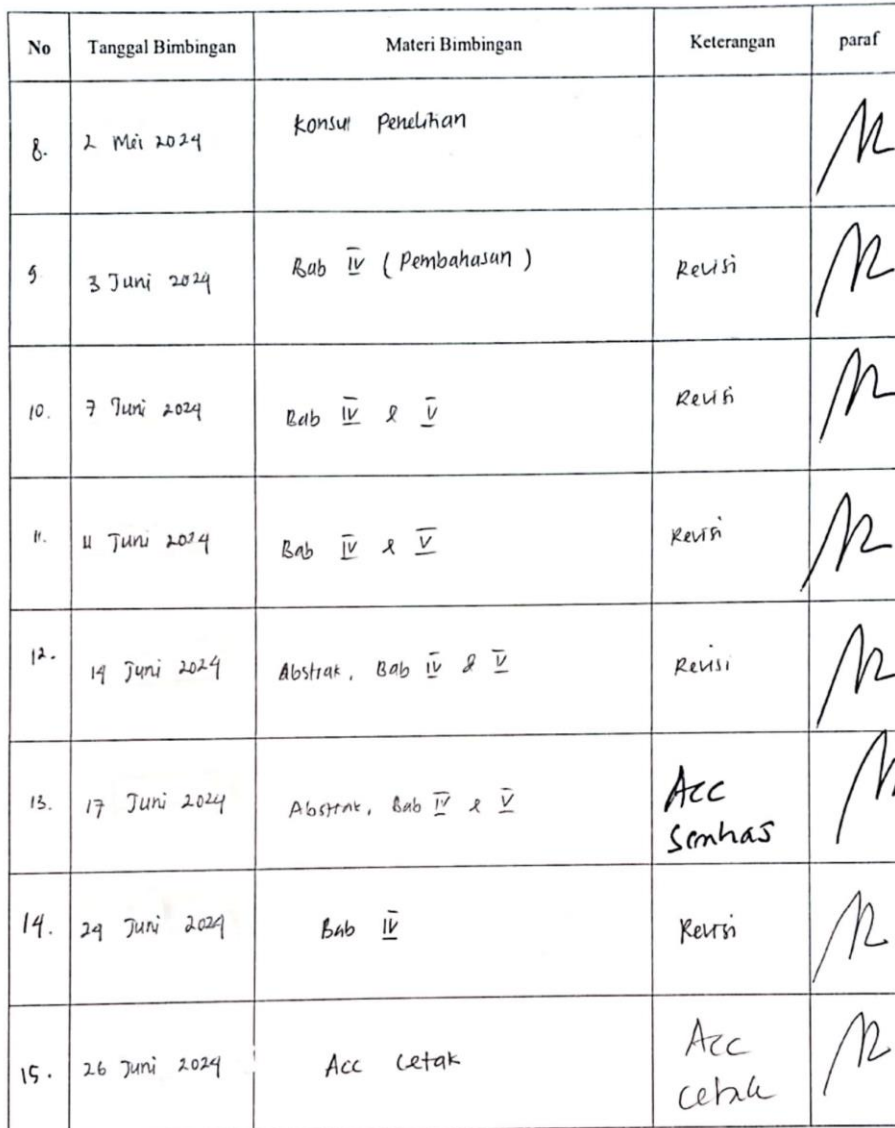 No Tanggal Bimbingan Materi Bimbingan Keterangan paraf
8. 2 Mei 2024 Konsul Penelitian
9 3 Juni 2024 Bab IV (Pembahasan) Revisi
10. 7 Juni 2024 Bab IV & V Revisi
11. 11 Juni 2024 Bab IV & V Revisi
12. 14 Juni 2024 Abstrak, Bab IV & V Revisi
13. 17 Juni 2024 Abstrak, Bab IV & V Acc
Semhas
14. 24 Juni 2024 Bab IV Revisi
15. 26 Juni 2024 Acc Cetak Acc
Cetak